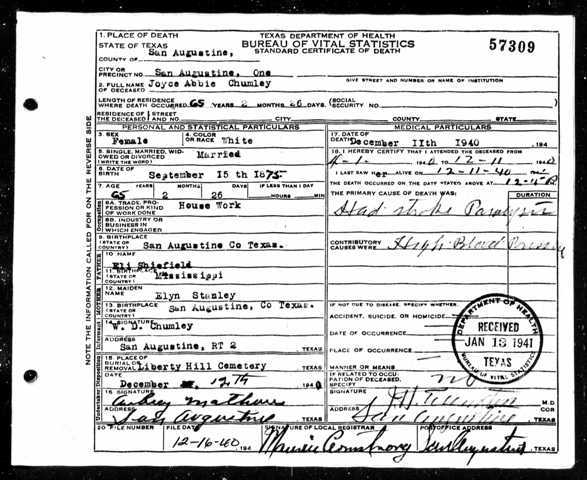 1. PLACE OF DEATH
STATE OF TEXAS
COUNTY OF San Augustine,
TEXAS DEPARTMENT OF HEALTH
BUREAU OF VITAL STATISTICS
STANDARD CERTIFICATE OF DEATH
57309
CITY OR PRECINCT NO. San Augustine, One
GIVE STREET AND NUMBER OR NAME OF INSTITUTION
2. FULL NAME OF DECEASED Joyce Abbie Chumley
LENGTH OF RESIDENCE WHERE DEATH OCCURRED 65 YEARS 2 MONTHS 26 DAYS. (SOCIAL SECURITY NO.
RESIDENCE OF THE DECEASED STREET AND NO. CITY COUNTY STATE
PERSONAL AND STATISTICAL PARTICULARS
3. SEX Female
4. COLOR OR RACE White
5. SINGLE, MARRIED, WIDOWED OR DIVORCED (WRITE THE WORD) Married
6. DATE OF BIRTH September 15 th 1875
7. AGE 65 YEARS 2 MONTHS 26 DAYS IF LESS THAN 1 DAY HOURS MIN.
8A. TRADE, PROFESSION OR KIND OF WORK DONE House Work
8B. INDUSTRY OR BUSINESS IN WHICH ENGAGED
9. BIRTHPLACE (STATE OR COUNTRY) San Augustine Co Texas.
FATHER
10. NAME Eli Shiefield
11. BIRTHPLACE (STATE OR COUNTRY) Mississippi
MOTHER
12. MAIDEN NAME Elyn Stamley
13. BIRTHPLACE (STATE OR COUNTRY) San Augustine, Co Texas.
14. SIGNATURE W. D. Chumley
ADDRESS San Augustine, RT 2 TEXAS
15. PLACE OF BURIAL OR REMOVAL Liberty Hill Cemetery TEXAS
DATE December 12th 1940
16. SIGNATURE Audrey Mathews
ADDRESS San Augustine TEXAS
MEDICAL PARTICULARS
17. DATE OF DEATH December 11th 1940 194
18. I HEREBY CERTIFY THAT I ATTENDED THE DECEASED FROM
1940 TO 12-11 1940
I LAST SAW HER ALIVE ON 12-11-40
THE DEATH OCCURRED ON THE DATE STATED ABOVE AT
THE PRIMARY CAUSE OF DEATH WAS: DURATION
Had stroke Paralysis
CONTRIBUTORY CAUSES WERE: High Blood Pressure
IF NOT DUE TO DISEASE, SPECIFY WHETHER:
ACCIDENT, SUICIDE, OR HOMICIDE
DATE OF OCCURRENCE
PLACE OF OCCURRENCE
MANNER OR MEANS
IF RELATED TO OCCUPATION OF DECEASED, SPECIFY no
SIGNATURE M.D.
ADDRESS San Augustine COR TEXAS
DEPARTMENT OF HEALTH
RECEIVED
JAN 13 1941
TEXAS
BUREAU OF VITAL STATISTICS
20 FILE NUMBER
FILE DATE 12-16-40 194
SIGNATURE OF LOCAL REGISTRAR Armstrong
POSTOFFICE ADDRESS San Augustine TEXAS
NOTE THE INFORMATION CALLED FOR ON THE REVERSE SIDE